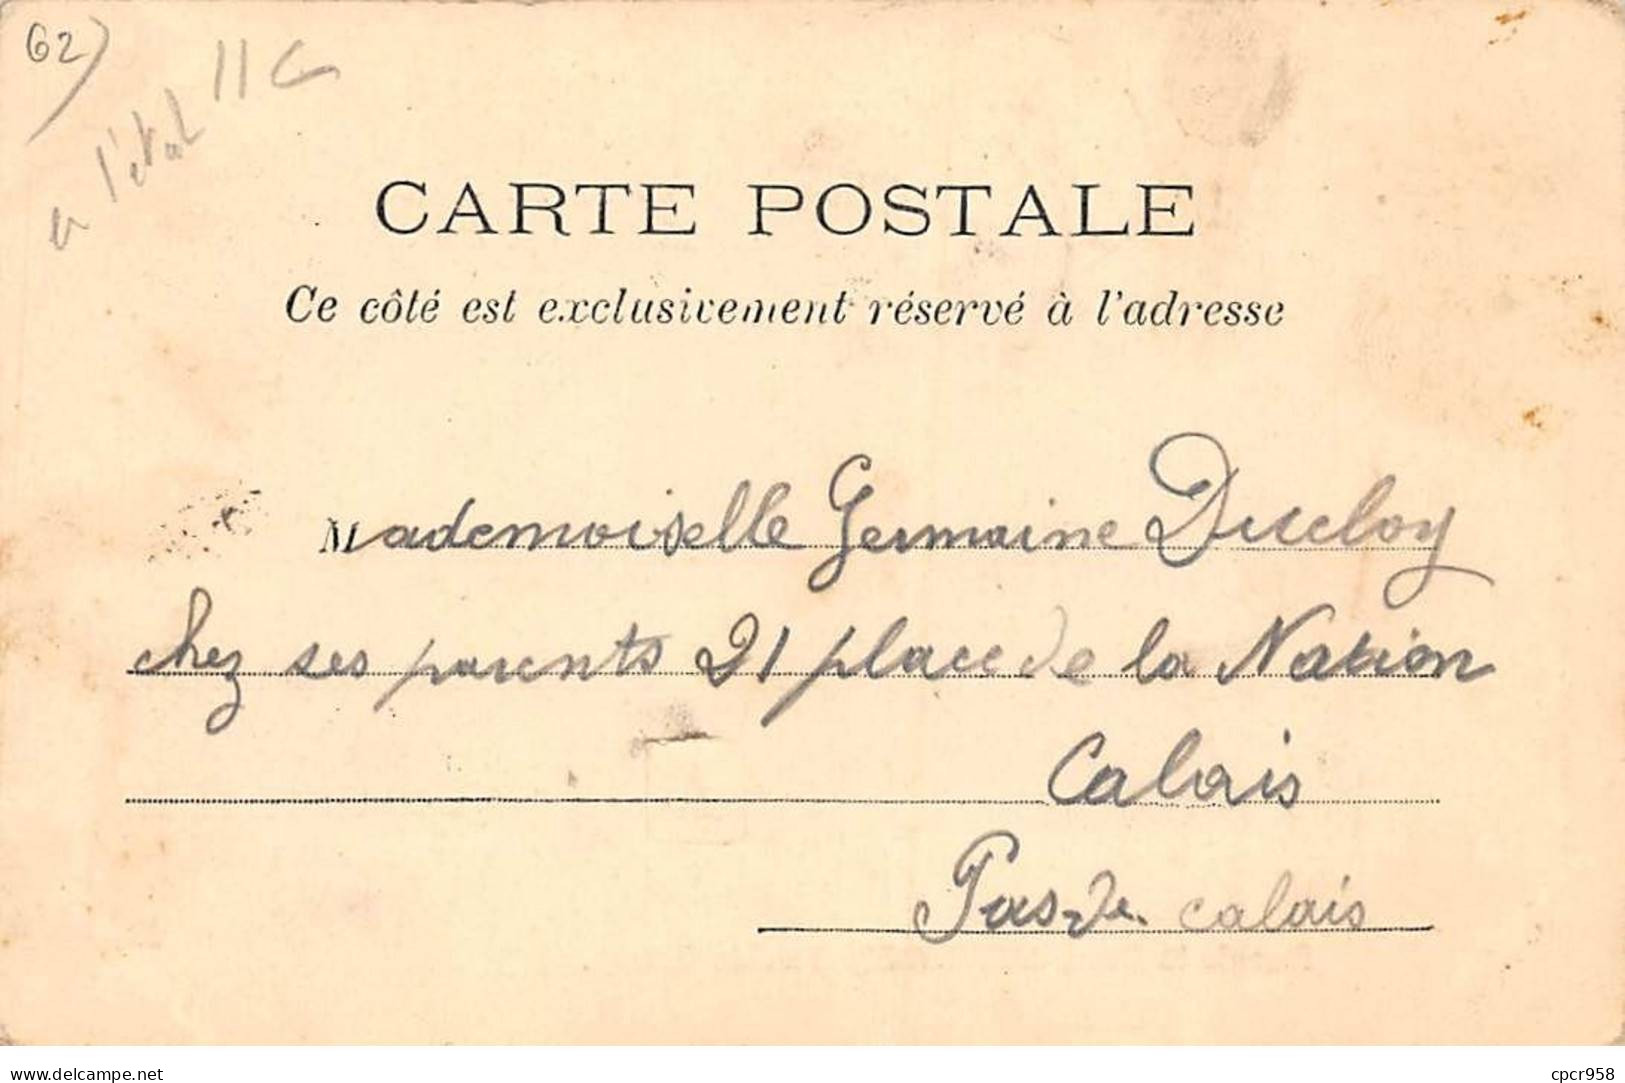 62)
l'état
CARTE POSTALE
Ce côté est exclusivement réservé à l'adresse
Mademoiselle Germaine Ducloy
chez ses parents 21 place de la Nation
Calais
Pas de calais
www.delcampe.net
cpcr958